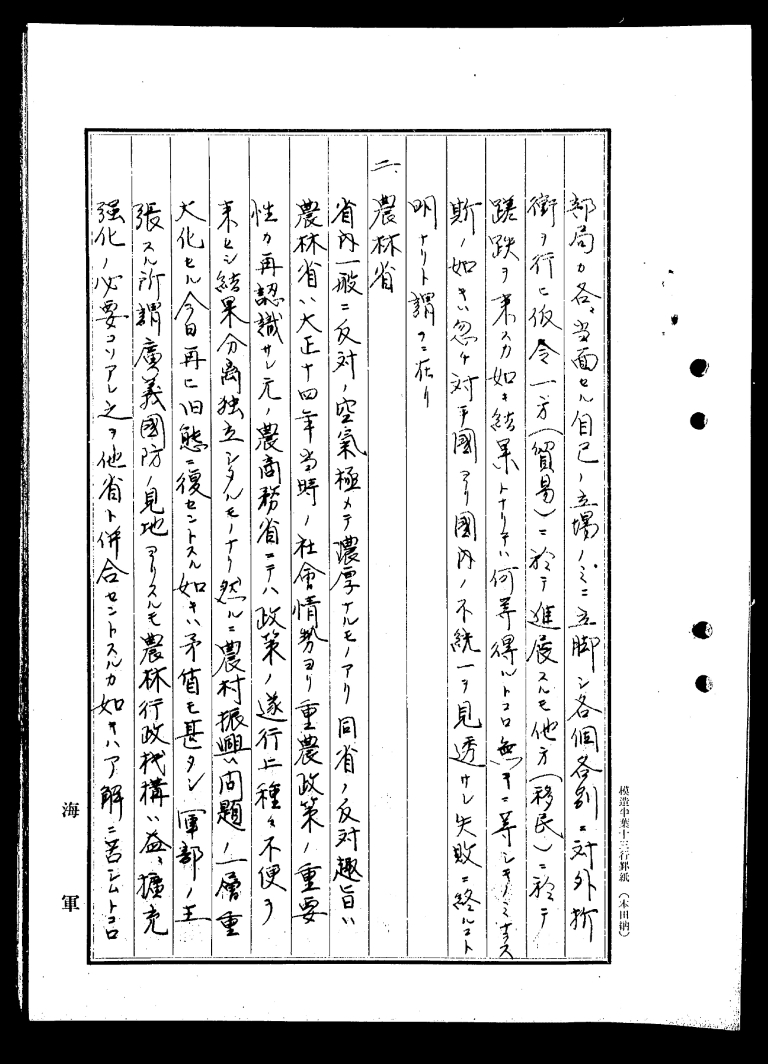 部局カ各〻当面セル自己ノ立場ノミニ立脚シ各個各別ニ対外折
衝ヲ行ヒ仮令一方(貿易)ニ於テ進展スルモ他方(移民)ニ於テ
蹉跌ヲ来スカ如キ結果トナリテハ何等得ルトコロ無キニ等シキノミナラス
斯ノ如キハ忽チ対手國ヨリ國内ノ不統一ヲ見透サレ失敗ニ終ルコト
明ナリト謂フニ在リ
二、農林省
省内一般ニ反対ノ空氣極メテ濃厚ナルモノアリ同省ノ反対趣旨ハ
農林省ハ大正十四年当時ノ社會情勢ヨリ重農政策ノ重要
性カ再認識サレ元ノ農商務省ニテハ政策ノ遂行上種々不便ヲ
来セシ結果分离独立シタルモノナリ然ルニ農村振興ハ問題ノ一層重
大化セル今日再ヒ旧態ニ復セントスル如キハ矛盾モ甚タシ軍部ノ主
張スル所謂廣義國防ノ見地ヨリスルモ農林行政機構ハ益〻擴充
强化ノ必要コソアレ之ヲ他省ト併合セントスルカ如キハ了解ニ苦シムトコロ
海軍
模造半葉十三行罫紙(本田納)